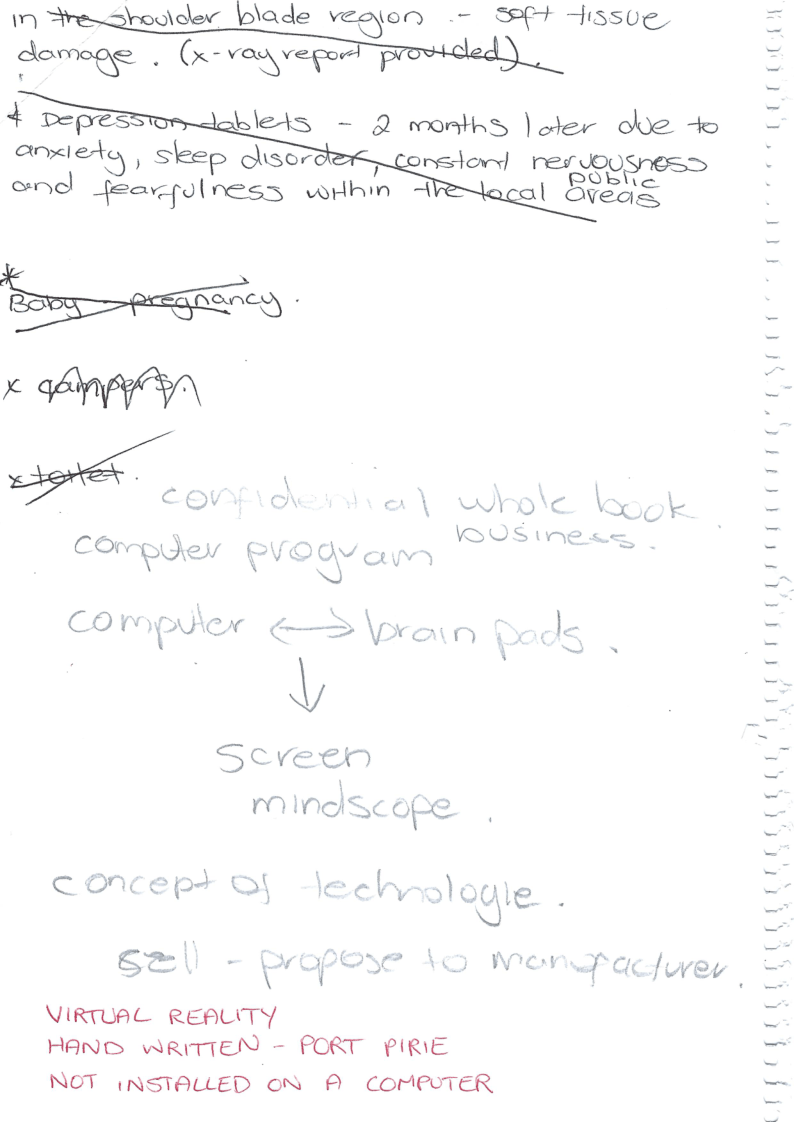 in the shoulder blade region - soft tissue
damage. (x-ray report provided).
* Depression tablets - 2 months later due to
anxiety, sleep disorder, constant nervousness
and fearfulness within the local public areas
*
Baby pregnancy.
x
x toilet.
confidential whole book
computer program business.
computer ↔ brain pads.
↓
screen
mindscope.
concept of technologie.
sell - propose to manufacturer.
VIRTUAL REALITY
HAND WRITTEN - PORT PIRIE
NOT INSTALLED ON A COMPUTER